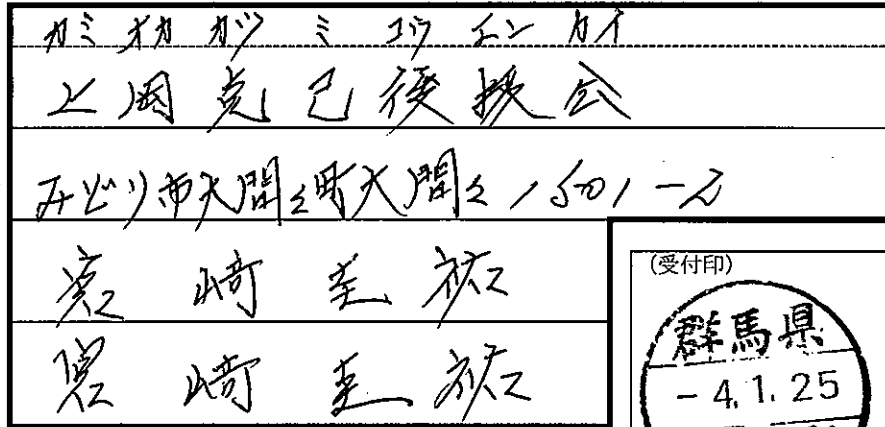 カミオカ カツミ コウエンカイ
上岡克己後援会
みどり市大間々町大間々1501-2
崎圭祐
崎圭祐
(受付印)
群馬県
-4.1.25